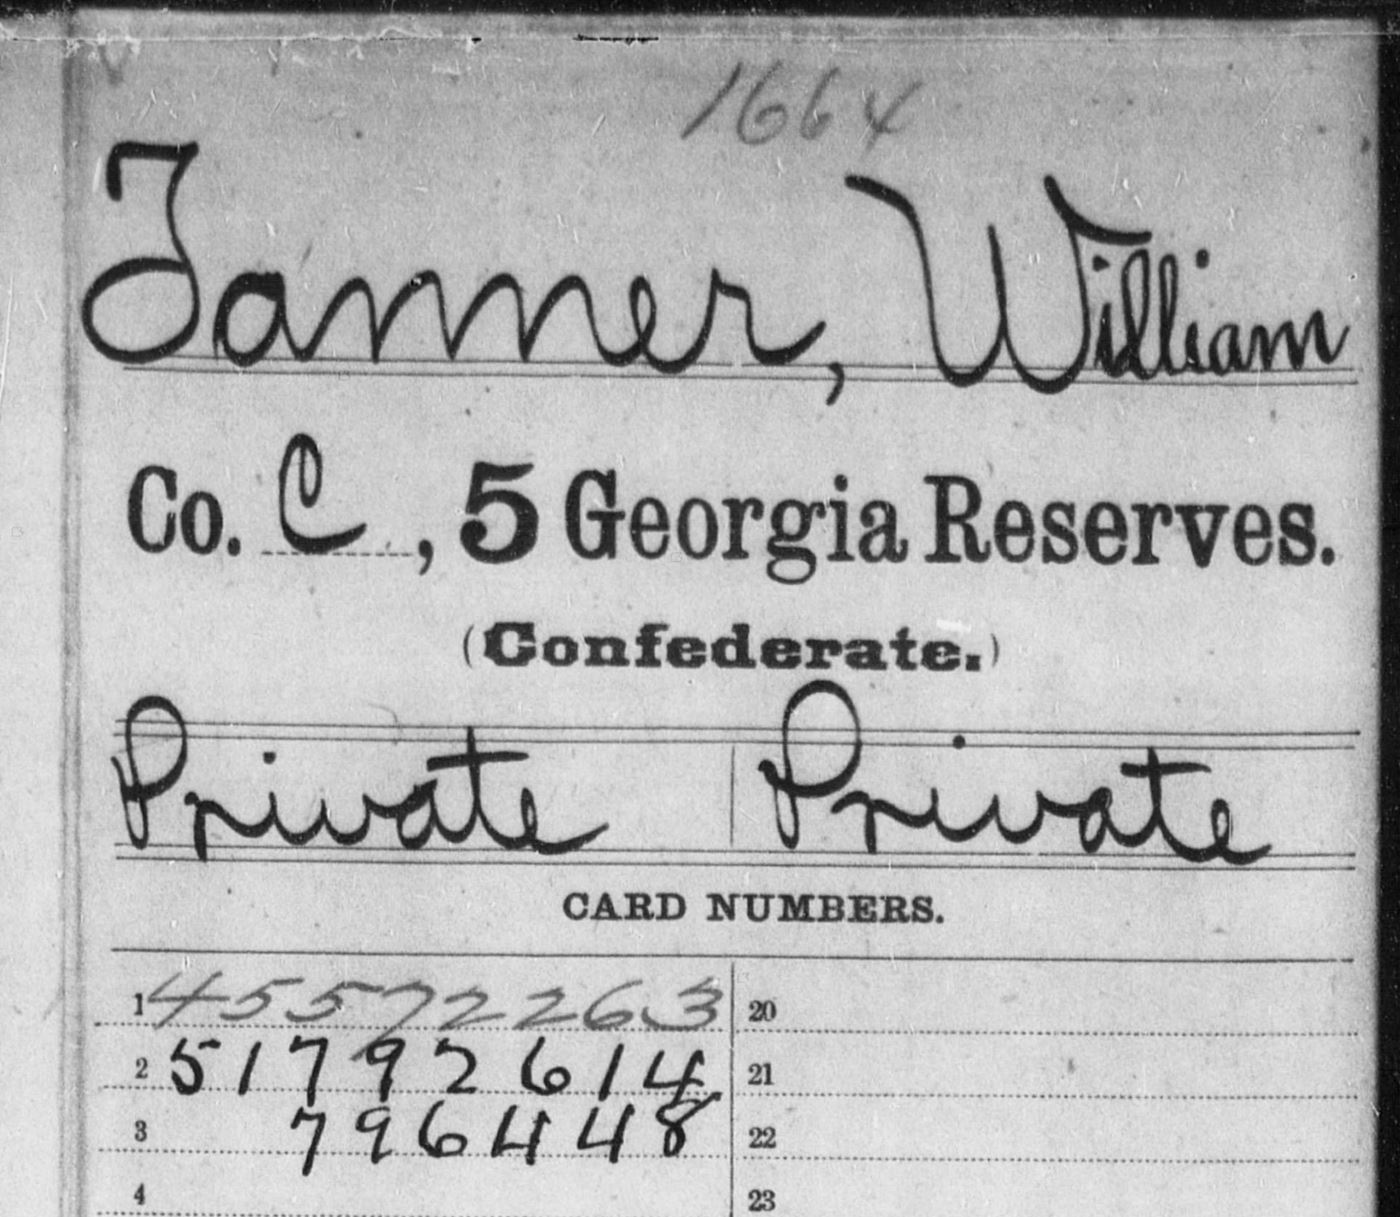 1664
Tanner, William
Co. C, 5 Georgia Reserves.
(Confederate.)
Private Private
CARD NUMBERS.
1 45572263 20
2 51792614 21
3 796448 22
4 23